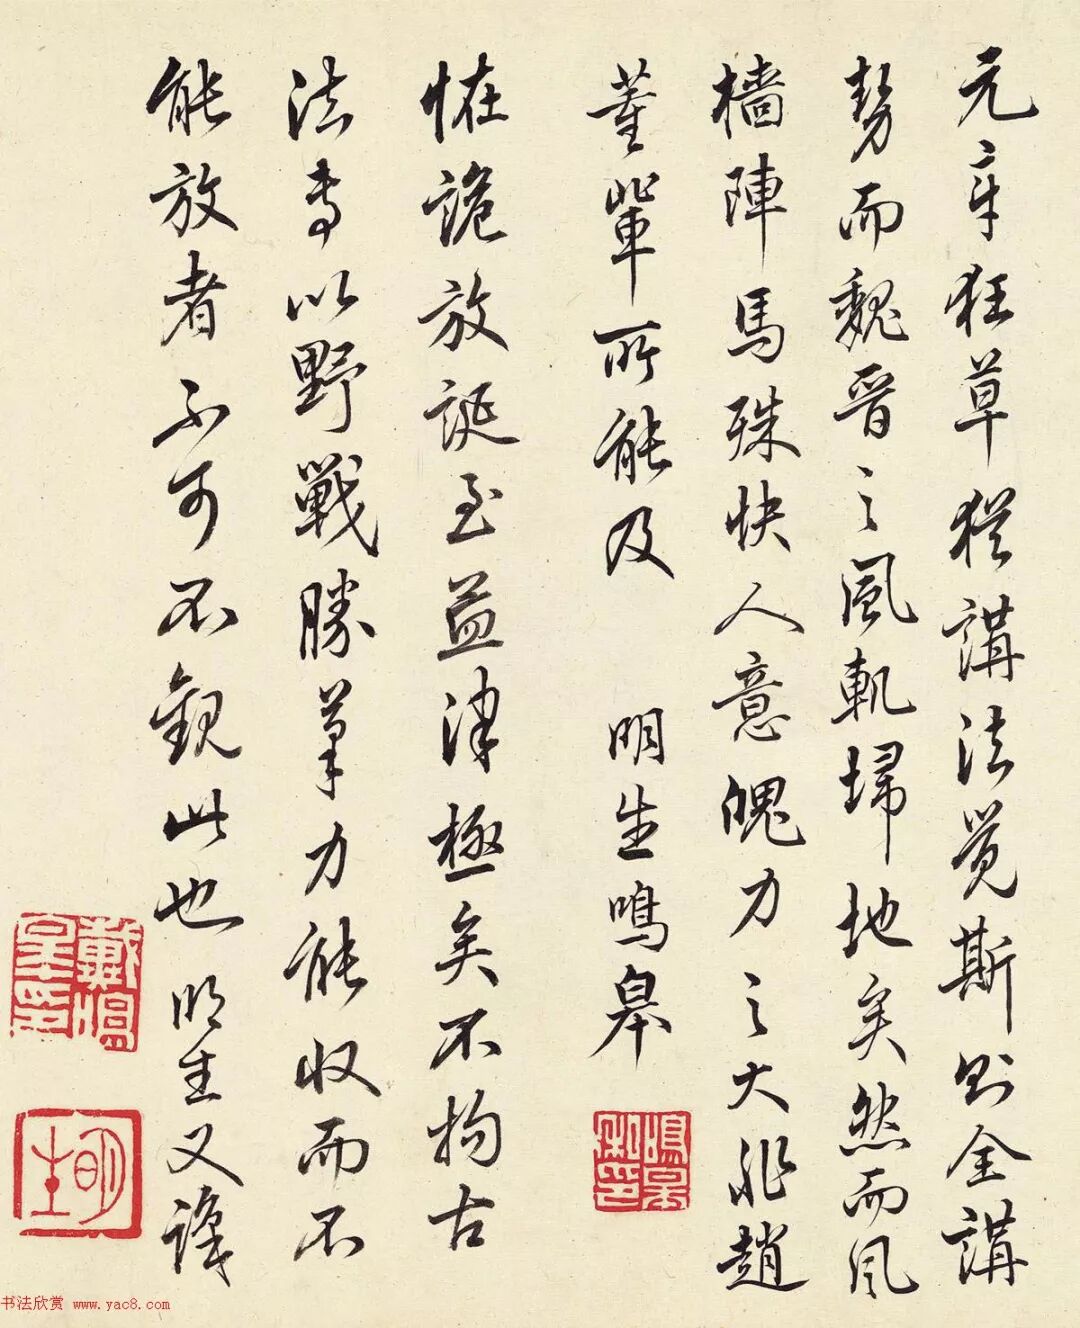 元章狂草犹講法觉斯则全講
勢而魏晋之風軌埽地矣然而风
樯陣馬殊快人意魄力之大非趙
董輩所能及 明生鳴皋
怪詭放诞至益津極矣不拘古
法专以野戰勝笔力能收而不
能放者不可不観此也 明生又識
鳴皋私印
戴鳴皋印
明生
书法欣赏 www.yac8.com